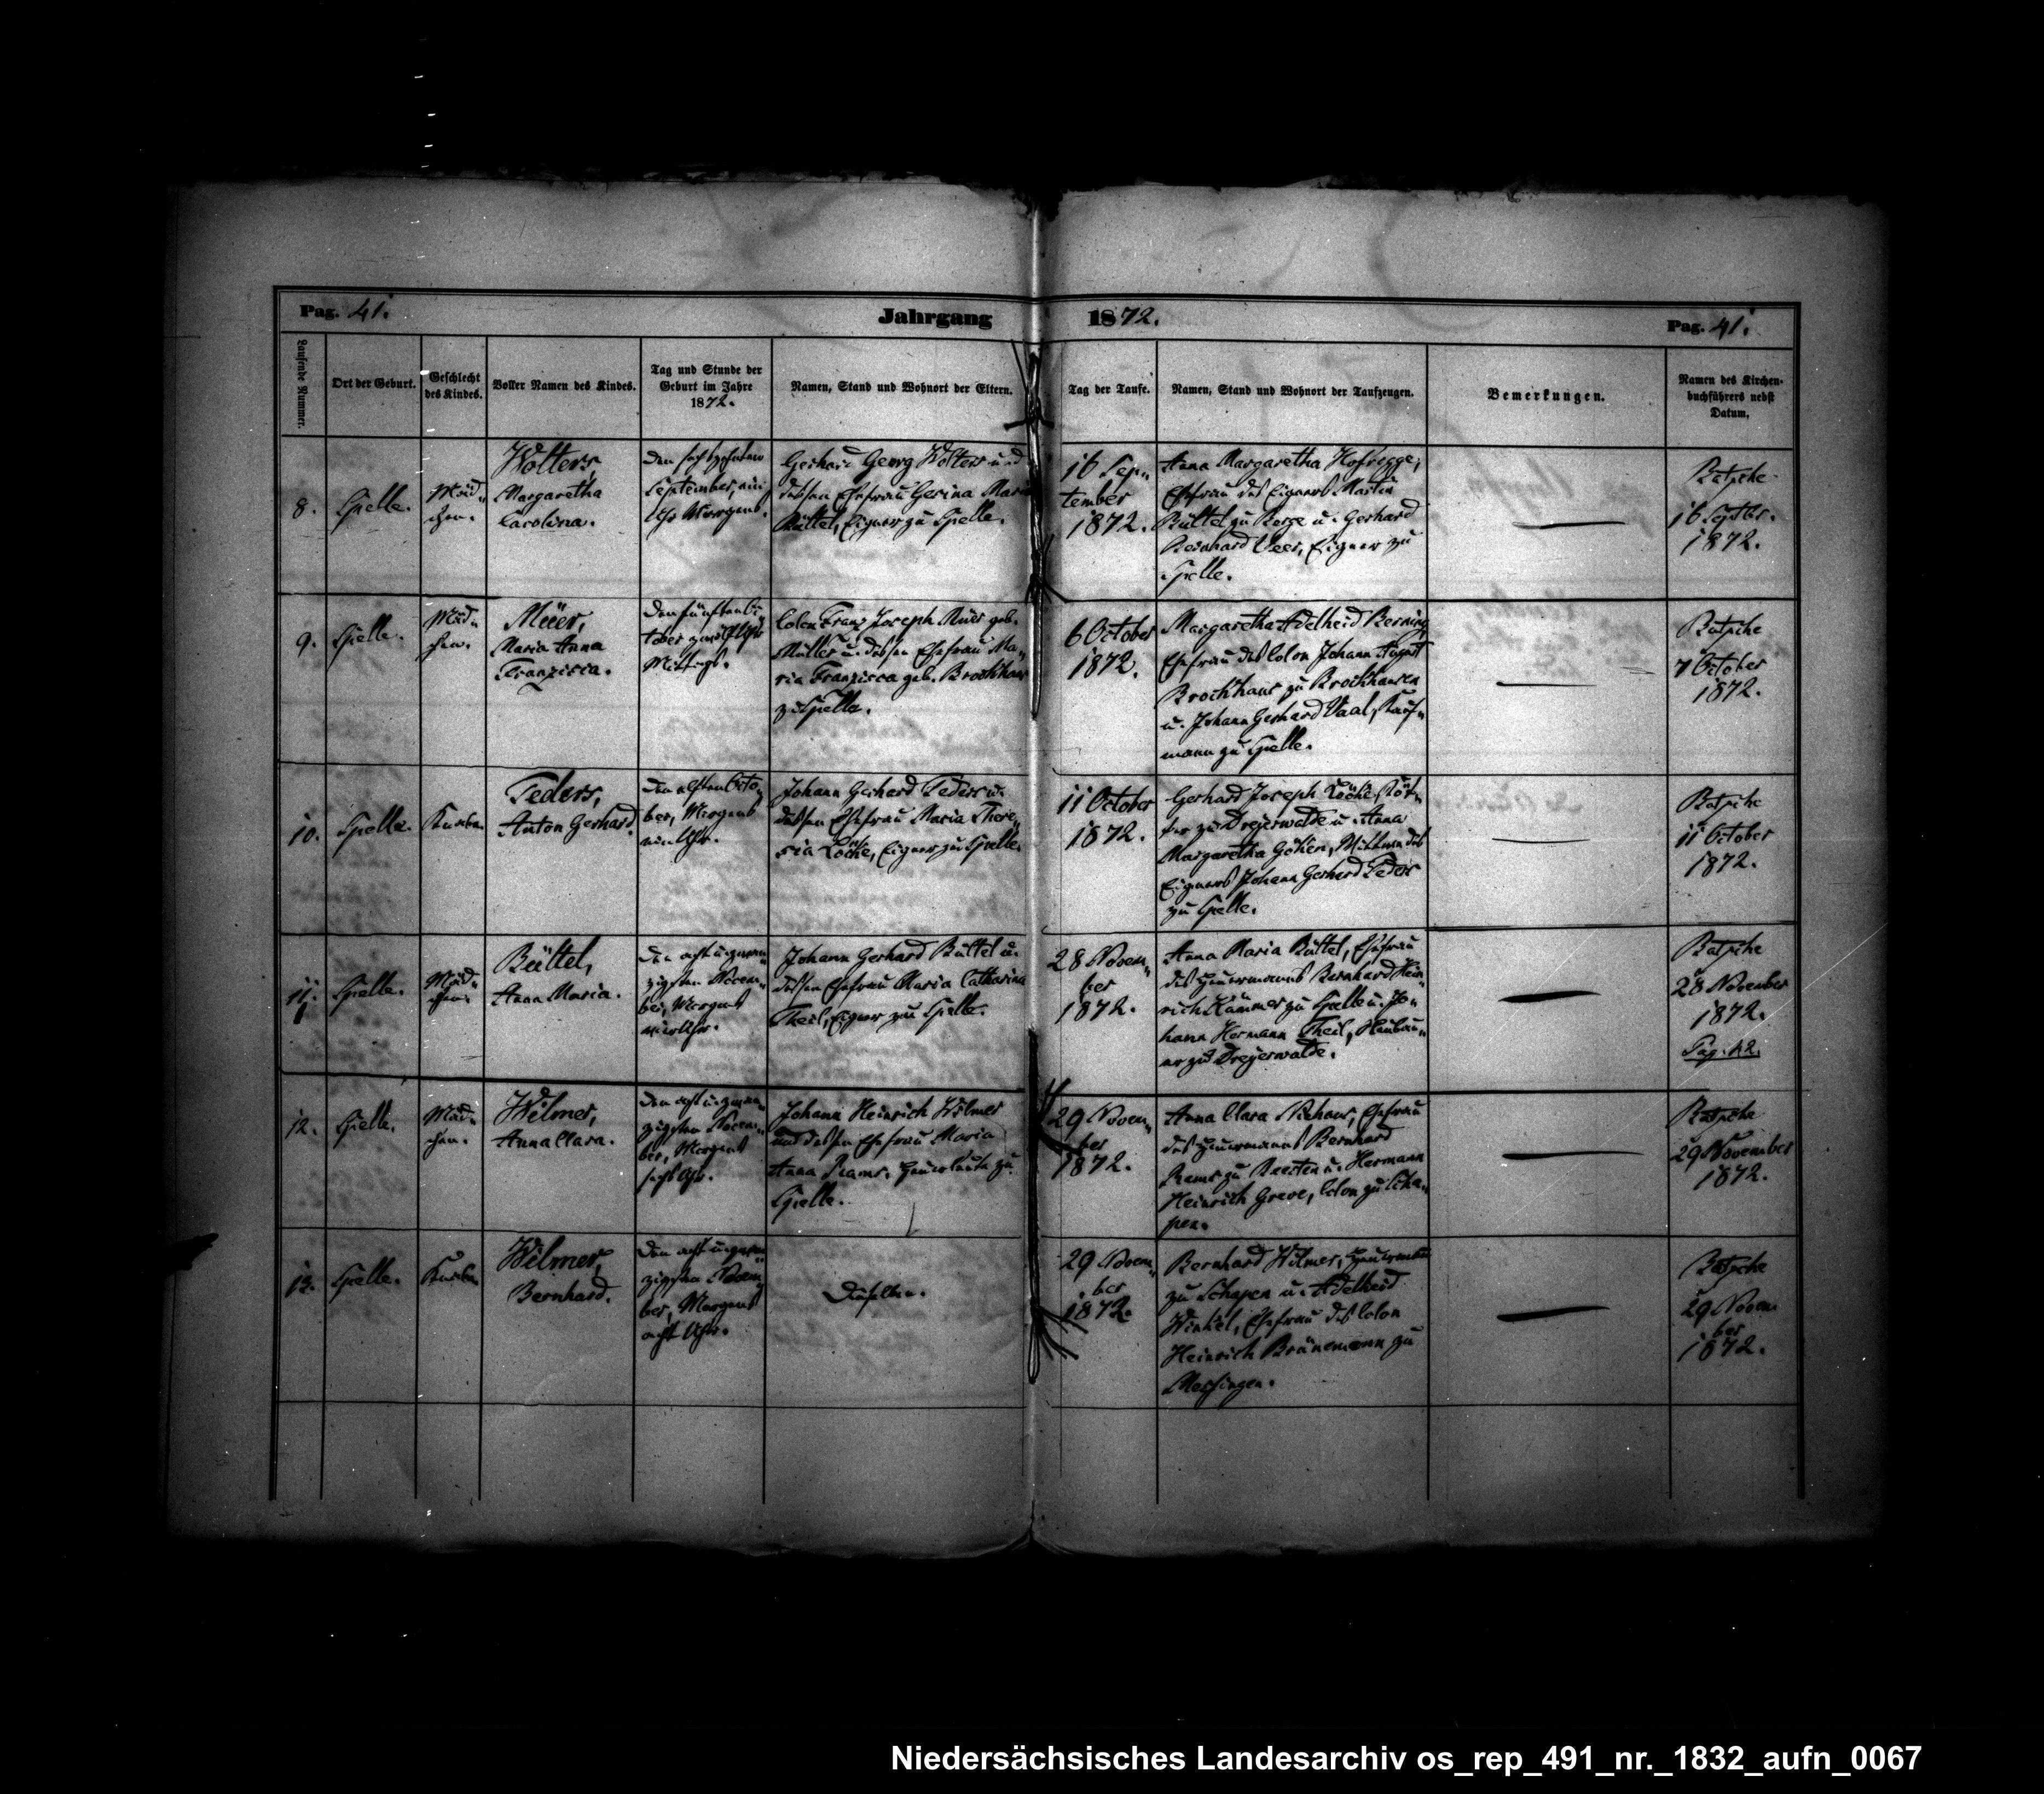 Pag. 41. Jahrgang 1872. Pag. 41.
Laufende Nummer.
Ort der Geburt.
Geschlecht
des Kindes.
Voller Namen des Kindes.
Tag und Stunde der
Geburt im Jahre
1872.
Namen, Stand und Wohnort der Eltern.
Tag der Taufe.
Namen, Stand und Wohnort der Taufzeugen.
Bemerkungen.
Namen des Kirchen-
buchführers nebst
Datum.
8.
Spelle.
Mäd-
chen.
Wolters,
Margaretha
Carolina.
Den sechszehnten
September, ein
Uhr Morgens.
Gerhard Georg Wolters und
dessen Ehefrau Gesina Maria
Bültel, Eigner zu Spelle.
16 Sep-
tember
1872.
Anna Margaretha Hofrogge,
Ehefrau des Eigners Martin
Bültel zu Berge u. Gerhard
Bernhard Veer, Eigner zu
Spelle.
16 Septbr.
1872.
9.
Spelle.
Mäd-
chen.
Müer,
Maria Anna
Franzisca.
Den fünften Oc-
tober zwölf Uhr
Mittags.
Colon Franz Joseph Müer geb.
Müller u. dessen Ehefrau Ma-
ria Franzisca geb. Brockhaus
zu Spelle.
6 October
1872.
Margaretha Adelheid Berning,
Ehefrau des Colon Johann August
Brockhaus zu Brockhausen
u. Johann Gerhard Vaal, Kauf-
mann zu Spelle.
7 October
1872.
10.
Spelle.
Knabe.
Feders,
Anton Gerhard.
Den elften Octo-
ber, Morgens
ein Uhr.
Johann Gerhard Feders u.
dessen Ehefrau Maria There-
sia Löcke, Eigner zu Spelle.
11 October
1872.
Gerhard Joseph Löcke, Köt-
ter zu Dreyerwalde u. Anna
Margaretha Göken, Wittwe des
Eigners Johann Gerhard Feders
zu Spelle.
11 October
1872.
11.
Spelle.
Mäd-
chen.
Bültel,
Anna Maria.
Den acht u. zwan-
zigsten Novem-
ber, Morgens
vier Uhr.
Johann Gerhard Bültel u.
dessen Ehefrau Maria Catharina
Theil, Eigner zu Spelle.
28 Novem-
ber
1872.
Anna Maria Bültel, Ehefrau
des Heuermanns Bernhard Hein-
rich Kämmer zu Spelle u. Jo-
hann Hermann Theil, Neubau-
er zu Dreyerwalde.
28 November
1872.
Pag. 42.
12.
Spelle.
Mäd-
chen.
Wilmer,
Anna Clara.
Den acht u. zwan-
zigsten Novem-
ber, Morgens
sechs Uhr.
Johann Heinrich Wilmer
und dessen Ehefrau Maria
Anna Rams, Heuerleute zu
Spelle.
29 Novem-
ber
1872.
Anna Clara Niehaus, Ehefrau
des Heuermanns Bernhard
Rams zu Beesten u. Hermann
Heinrich Greve, Colon zu Scha-
pen.
29 November
1872.
13.
Spelle.
Knabe.
Wilmer,
Bernhard.
Den acht u. zwan-
zigsten Novem-
ber, Morgens
acht Uhr.
Dieselben.
29 Novem-
ber
1872.
Bernhard Wilmer, Heuermann
zu Schapen u. Adelheid
Winkel, Ehefrau des Colon
Heinrich Brünemann zu
Messingen.
29 Novem-
ber
1872.
Niedersächsisches Landesarchiv os_rep_491_nr._1832_aufn_0067